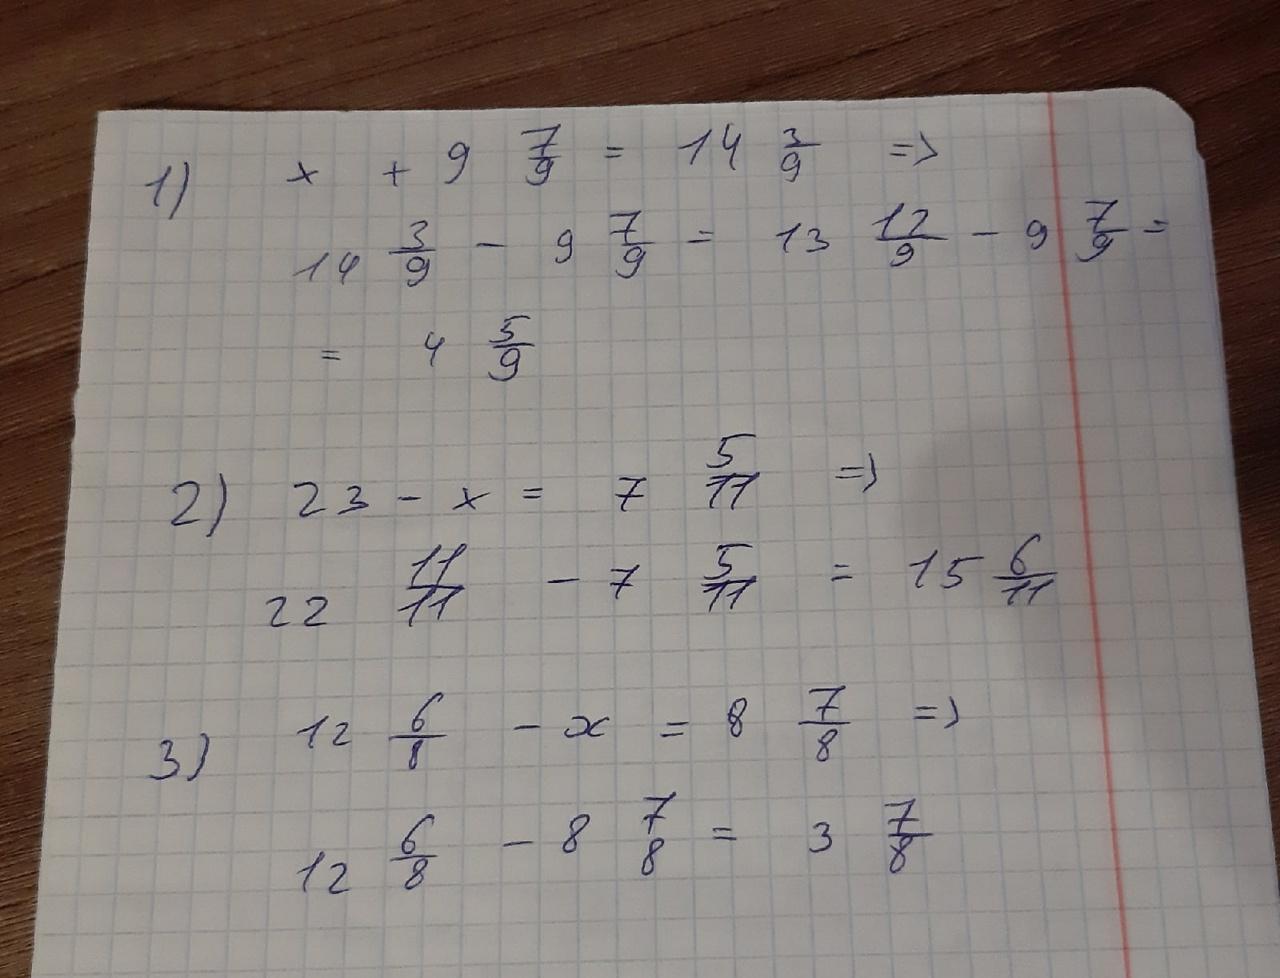 1) x + 9 7/9 = 14 3/9 =>
14 3/9 - 9 7/9 = 13 12/9 - 9 7/9 =
= 4 5/9
2) 23 - x = 7 5/11 =>
22 11/11 - 7 5/11 = 15 6/11
3) 12 6/8 - x = 8 7/8 =>
12 6/8 - 8 7/8 = 3 7/8